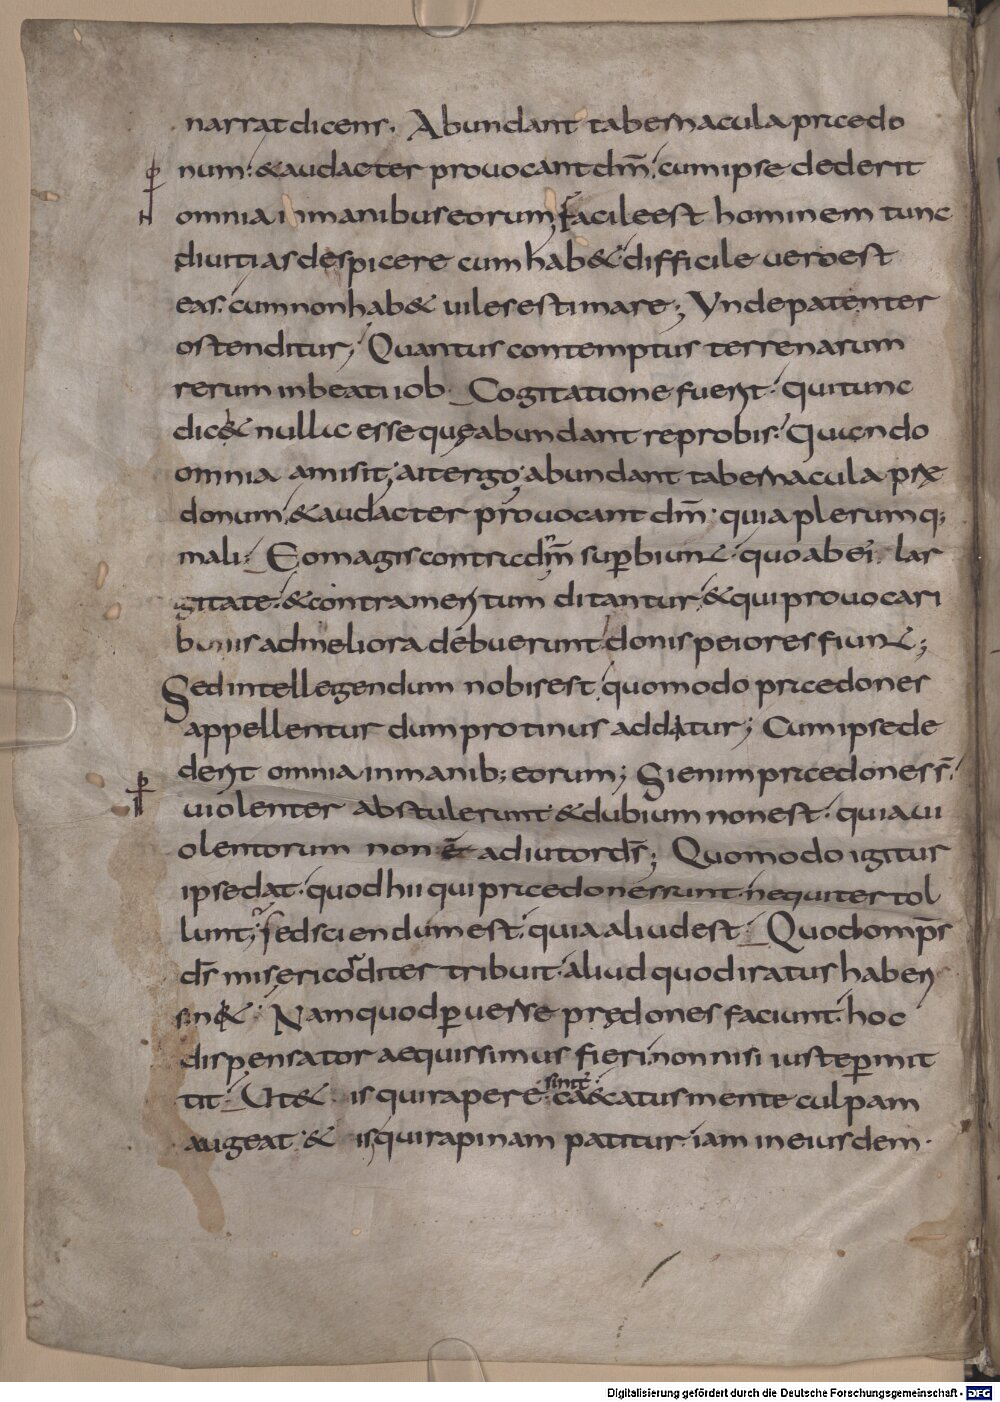 narrat dicens. Abundant tabernacula praedo
num. & audacter provocant dm̄. cum ipse dederit
omnia in manibus eorum; facile est hominem tunc
divitias despicere cum hab&; difficile vero est
eas. cum non hab& viles estimare; Unde patenter
ostenditur; Quantus contemptus terrenarum
rerum in beati iob. Cogitatione fuerit. qui tunc
dic& nullic esse quę abundant reprobis. Quando
omnia amisit; ait ergo; abundant tabernacula prę
donum. & audacter provocant dm̄. quia plerumq;
mali. Eo magis contra dm̄ suꝑbiunt. quo ab ei. lar
gitate. & contra meritum ditantur. & qui provocari
bonis ad meliora debuerunt. donis peiores fiunt;
Sed intellegendum nobis est. quomodo praedones
appellentur dum protinus addatur; Cum ipse de
derit omnia in manib; eorum; Si enim praedones s̄.
violenter abstulerunt. & dubium non est. quia vi
olentorum non ē adiutor ds̄; Quomodo igitur
ipse dat. quod hii qui praedones sunt. nequiter tol
lunt; sed sciendum est. quia aliud est. Quod omps̄
ds̄ misericorditer tribuit. aliud quod iratus haberi
sin&. Nam quod ꝑverse prędones faciunt. hoc
dispensator aequissimus fieri. non nisi iuste ꝑmit
tit. Ut & is qui rapere sinit. caecatus mente culpam
augeat. & is qui rapinam patitur. iam in eius dem.
Digitalisierung gefördert durch die Deutsche Forschungsgemeinschaft - DFG